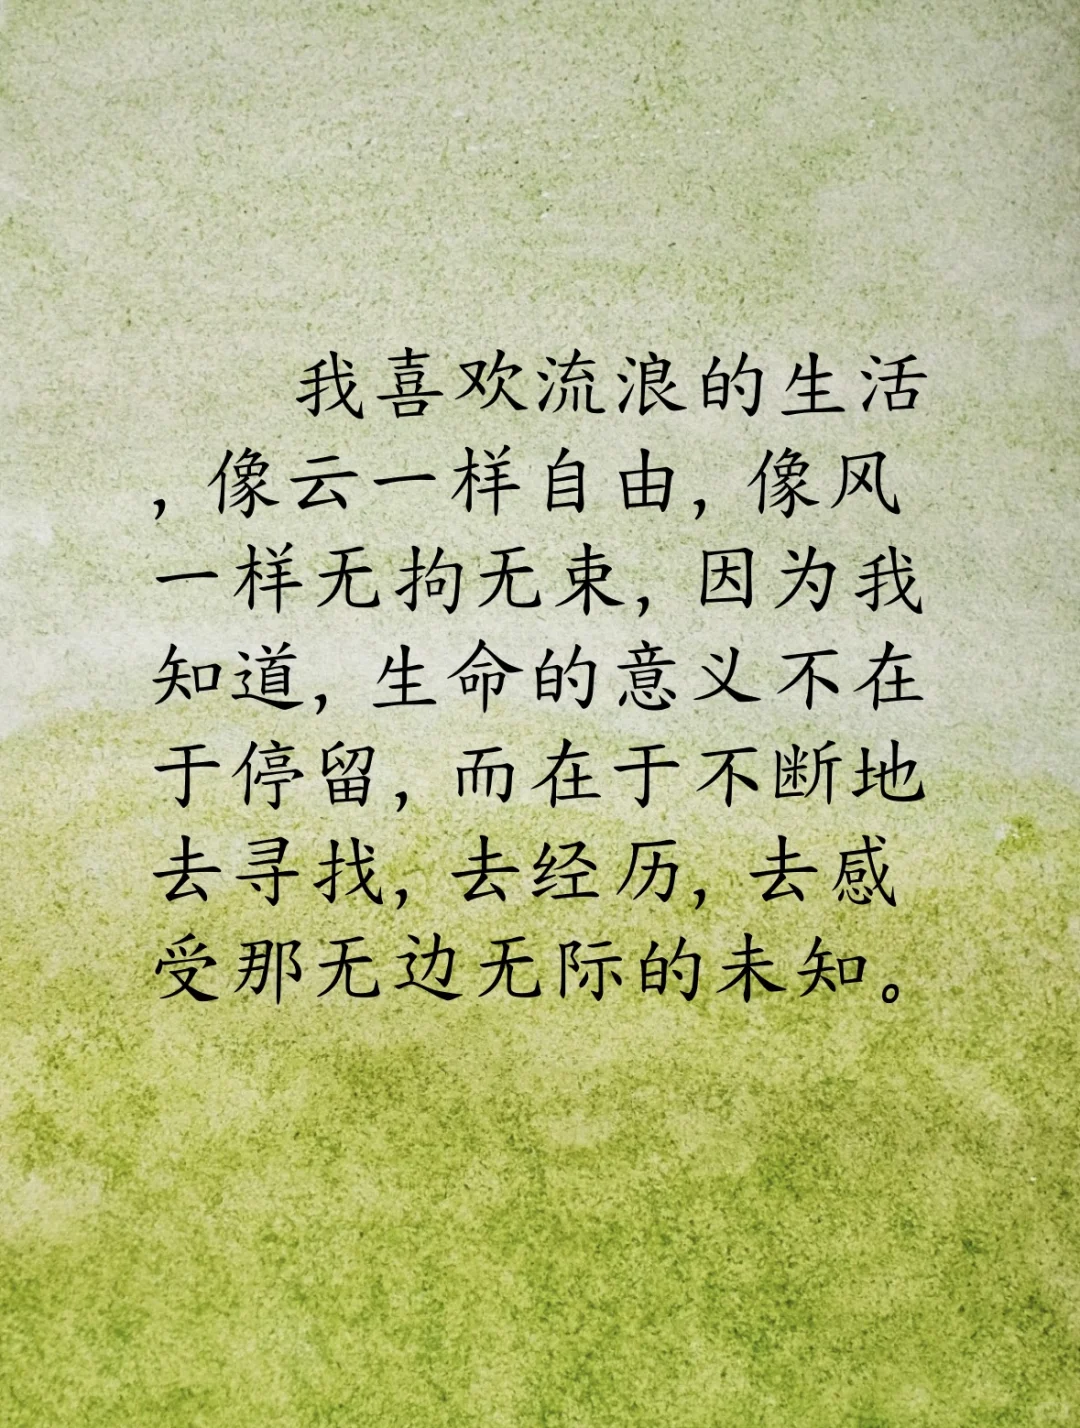 我喜欢流浪的生活
，像云一样自由，像风
一样无拘无束，因为我
知道，生命的意义不在
于停留，而在于不断地
去寻找，去经历，去感
受那无边无际的未知。